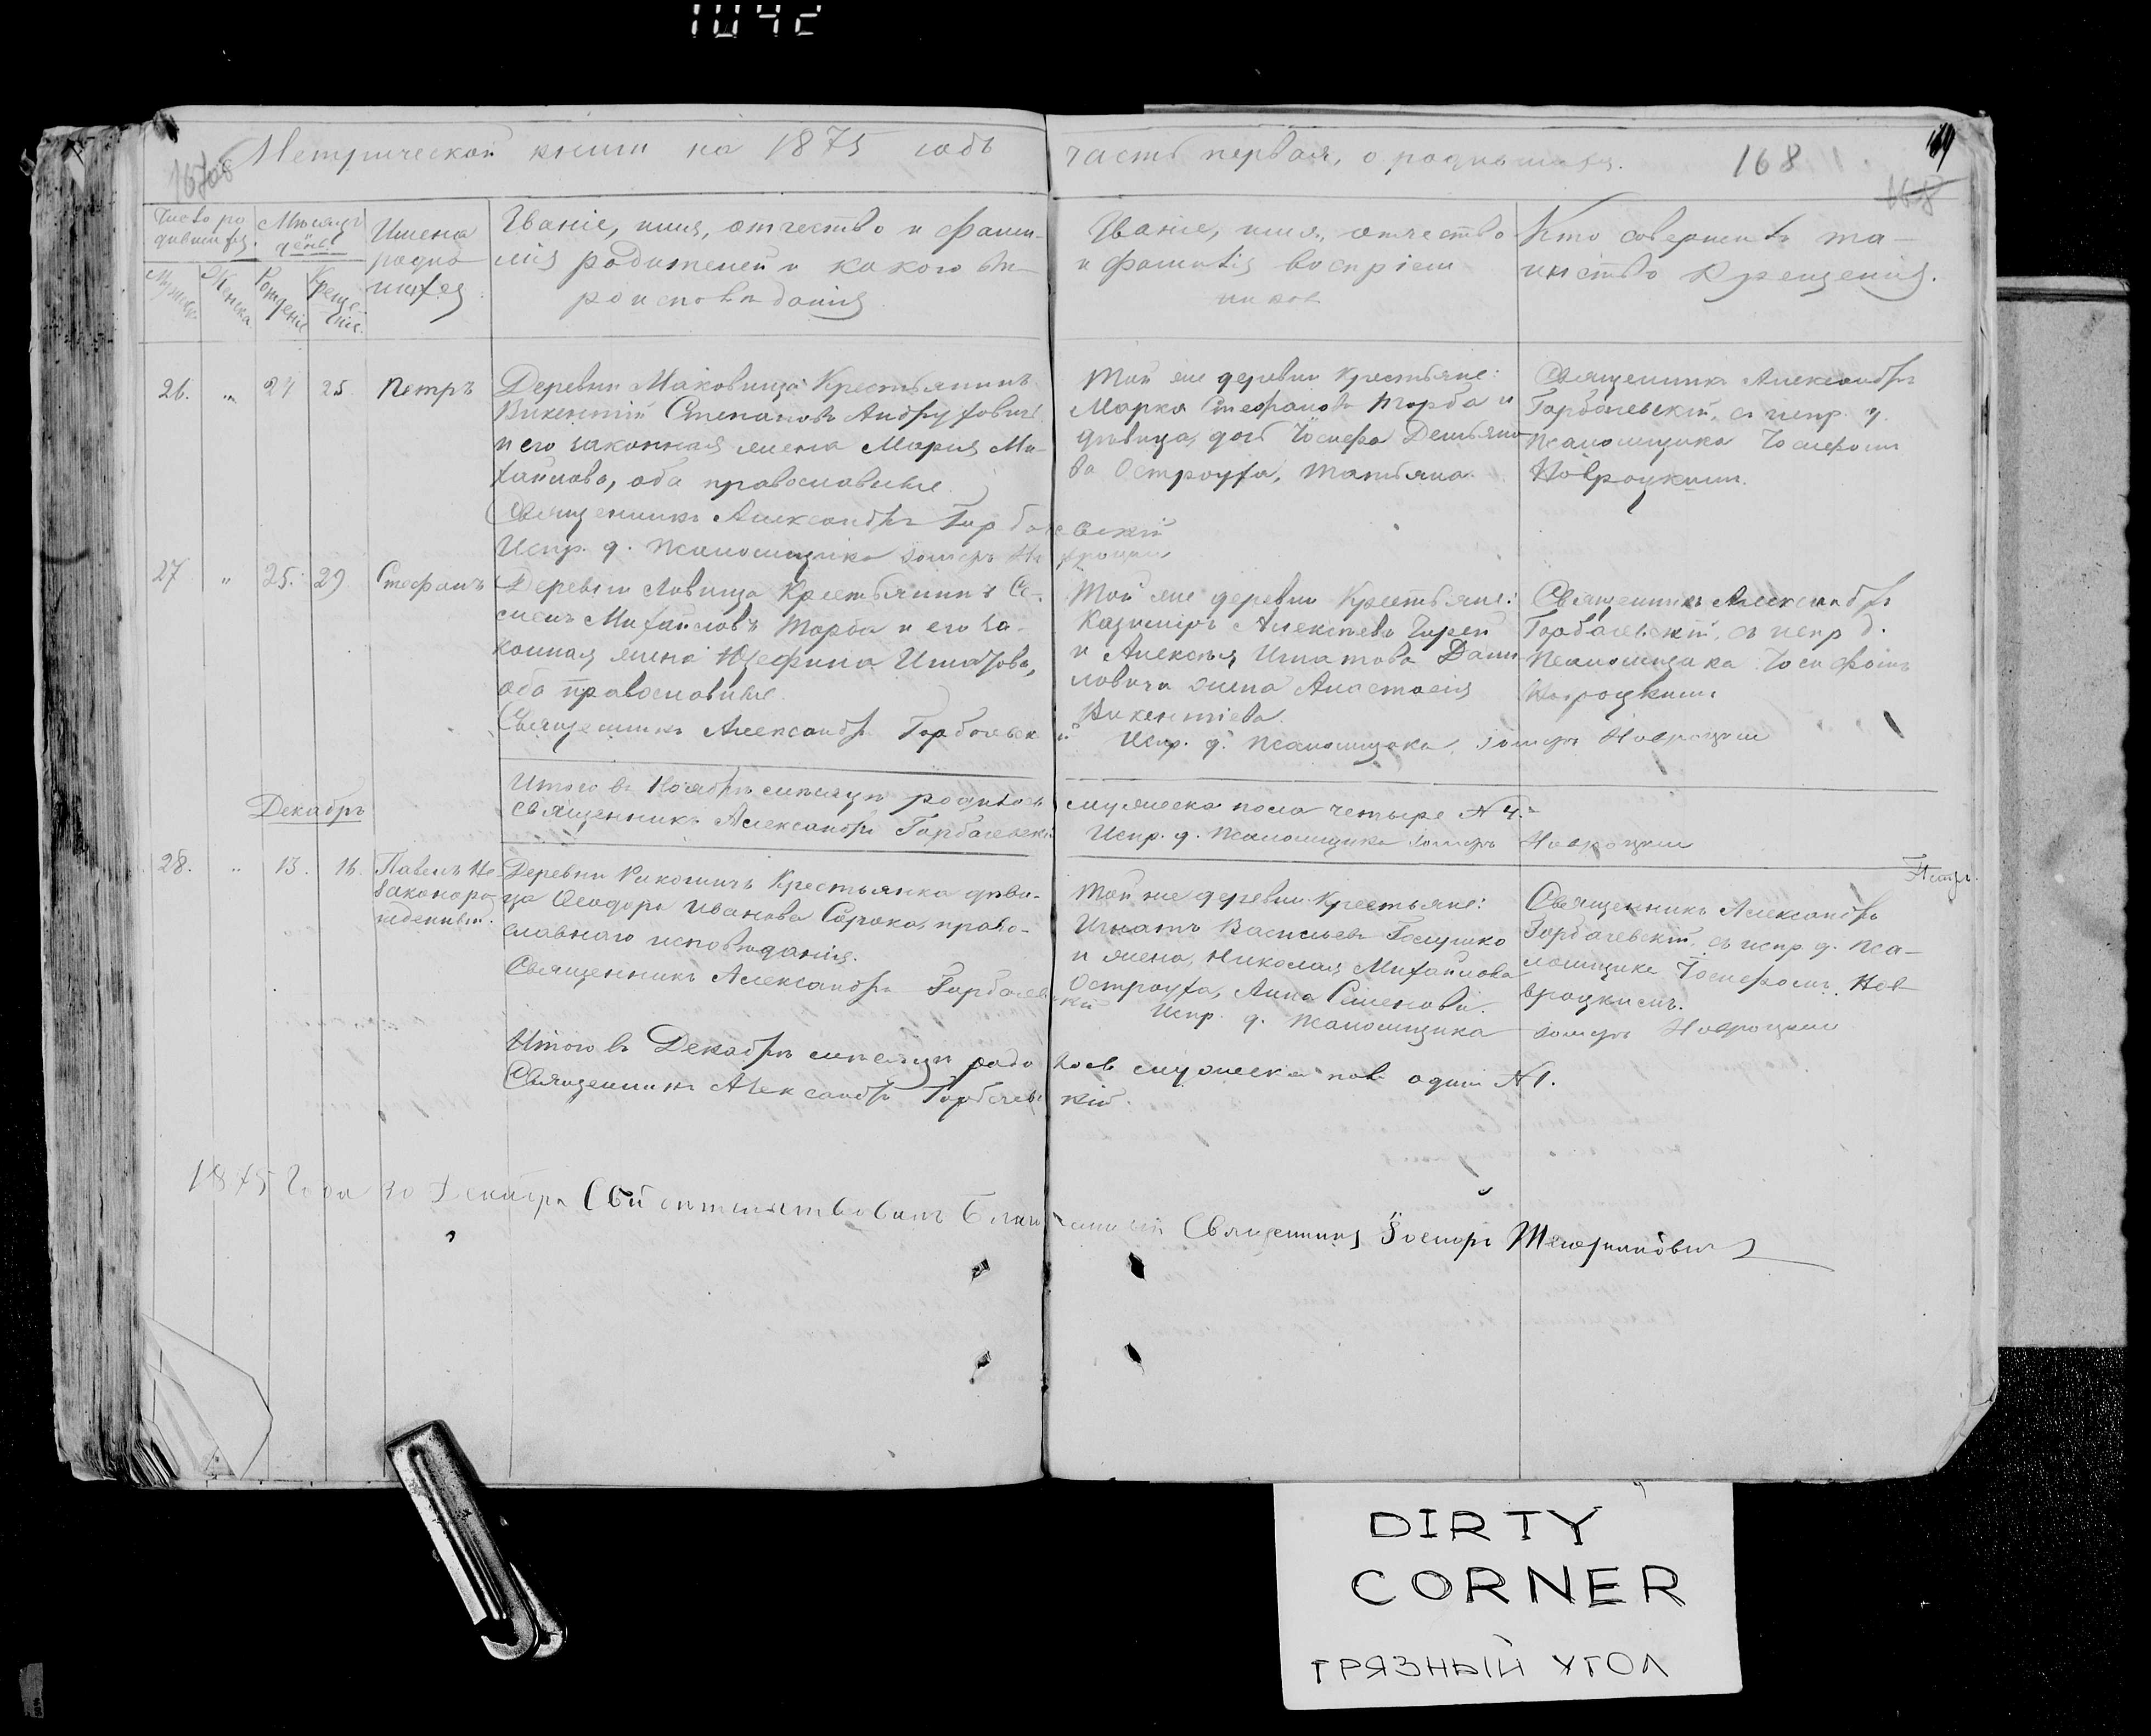 1042
Метрической книги на 1875 годъ
часть первая, о родившихся.
168
Число родившихся.
Мѣсяцъ день.
Имена родившихся.
Званіе, имя, отчество и фамилія родителей и какого вѣроисповѣданія.
Званіе, имя, отчество и фамилія воспріемниковъ
Кто совершилъ таинство Крещенія.
Женска
Рожденіе
Крещеніе.
26. " 24 25. Петръ
Деревни Маковища Крестьянинъ
Викентій Степановъ
и его законная жена Марія Ми-
хайлова, оба православные.
Священникъ Александръ Горбачевскій
Испр. д. псаломщика
Той же деревни Крестьяне:
Марко Стефановъ Торба и
дѣвица, дочь Іосифа Демьяно-
ва Остроуха, Татьяна.
Священникъ Александръ
Горбачевскій, съ испр. д.
псаломщика Іосифомъ
Навроцкимъ.
27 " 25. 29 Стефанъ
Деревни Крестьянинъ Се-
менъ Михайловъ Торба и его за-
конная жена Юзефина Игнатова,
оба православные.
Священникъ Александръ Горбачевскій
Той же деревни Крестьяне:
Казиміръ Алексѣевъ
и Алексѣя Игнатова Дани-
ловича жена Анастасія
Викентіева.
Испр. д. псаломщика Навроцкій
Священникъ Александръ
Горбачевскій, съ испр. д.
псаломщика Іосифомъ
Навроцкимъ
Итого въ Ноябрѣ мѣсяцѣ родилось мужеска пола четыре № 4.
Священникъ Александръ Горбачевскій
Испр. д. псаломщика Навроцкій
Декабрь
28. " 13. 16. Павелъ Не-
законоро-
жденный.
Деревни Крестьянка дѣви-
ца Ѳеодора Иванова Сорока, право-
славнаго исповѣданія.
Священникъ Александръ Горбачевскій
Той же деревни Крестьяне:
Игнатъ Васильевъ
и жена Николая Михайлова
Остроуха, Анна Семенова.
Испр. д. псаломщика Навроцкій
Священникъ Александръ
Горбачевскій, съ испр. д. пса-
ломщика Іосифомъ На-
вроцкимъ.
Итого въ Декабрѣ мѣсяцѣ родилось мужеска пола одинъ № 1.
Священникъ Александръ Горбачевскій.
1875 Года 30 Декабря Свидѣтельствовалъ Священникъ
DIRTY
CORNER
ГРЯЗНЫЙ УГОЛ